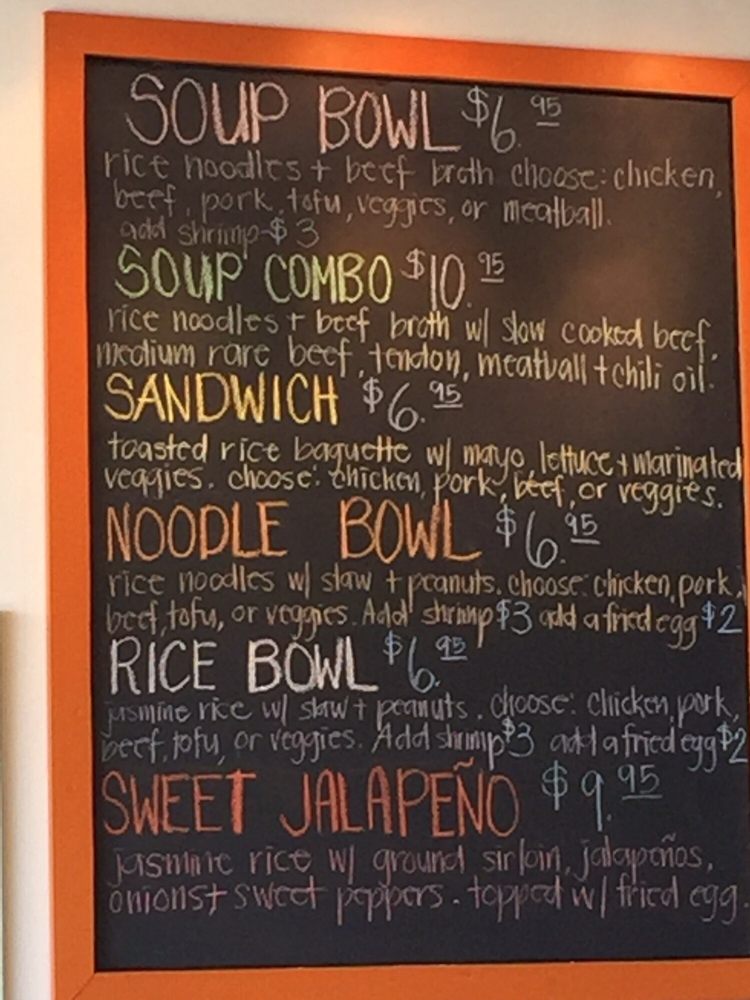 SOUP BOWL $6.95
rice noodles + beef broth choose: chicken,
beef, pork, tofu, veggies, or meatball.
add shrimp $3
SOUP COMBO $10.95
rice noodles + beef broth w/ slow cooked beef,
medium rare beef, tendon, meatball + chili oil.
SANDWICH $6.95
toasted rice baguette w/ mayo, lettuce + marinated
veggies. choose: chicken, pork, beef, or veggies.
NOODLE BOWL $6.95
rice noodles w/ slaw + peanuts. choose: chicken, pork,
beef, tofu, or veggies. Add shrimp $3 add a fried egg $2
RICE BOWL $6.95
jasmine rice w/ slaw + peanuts. choose: chicken, pork,
beef, tofu, or veggies. Add shrimp $3 add a fried egg $2
SWEET JALAPEÑO $9.95
jasmine rice w/ ground sirloin, jalapeños,
onions + sweet peppers. topped w/ fried egg.